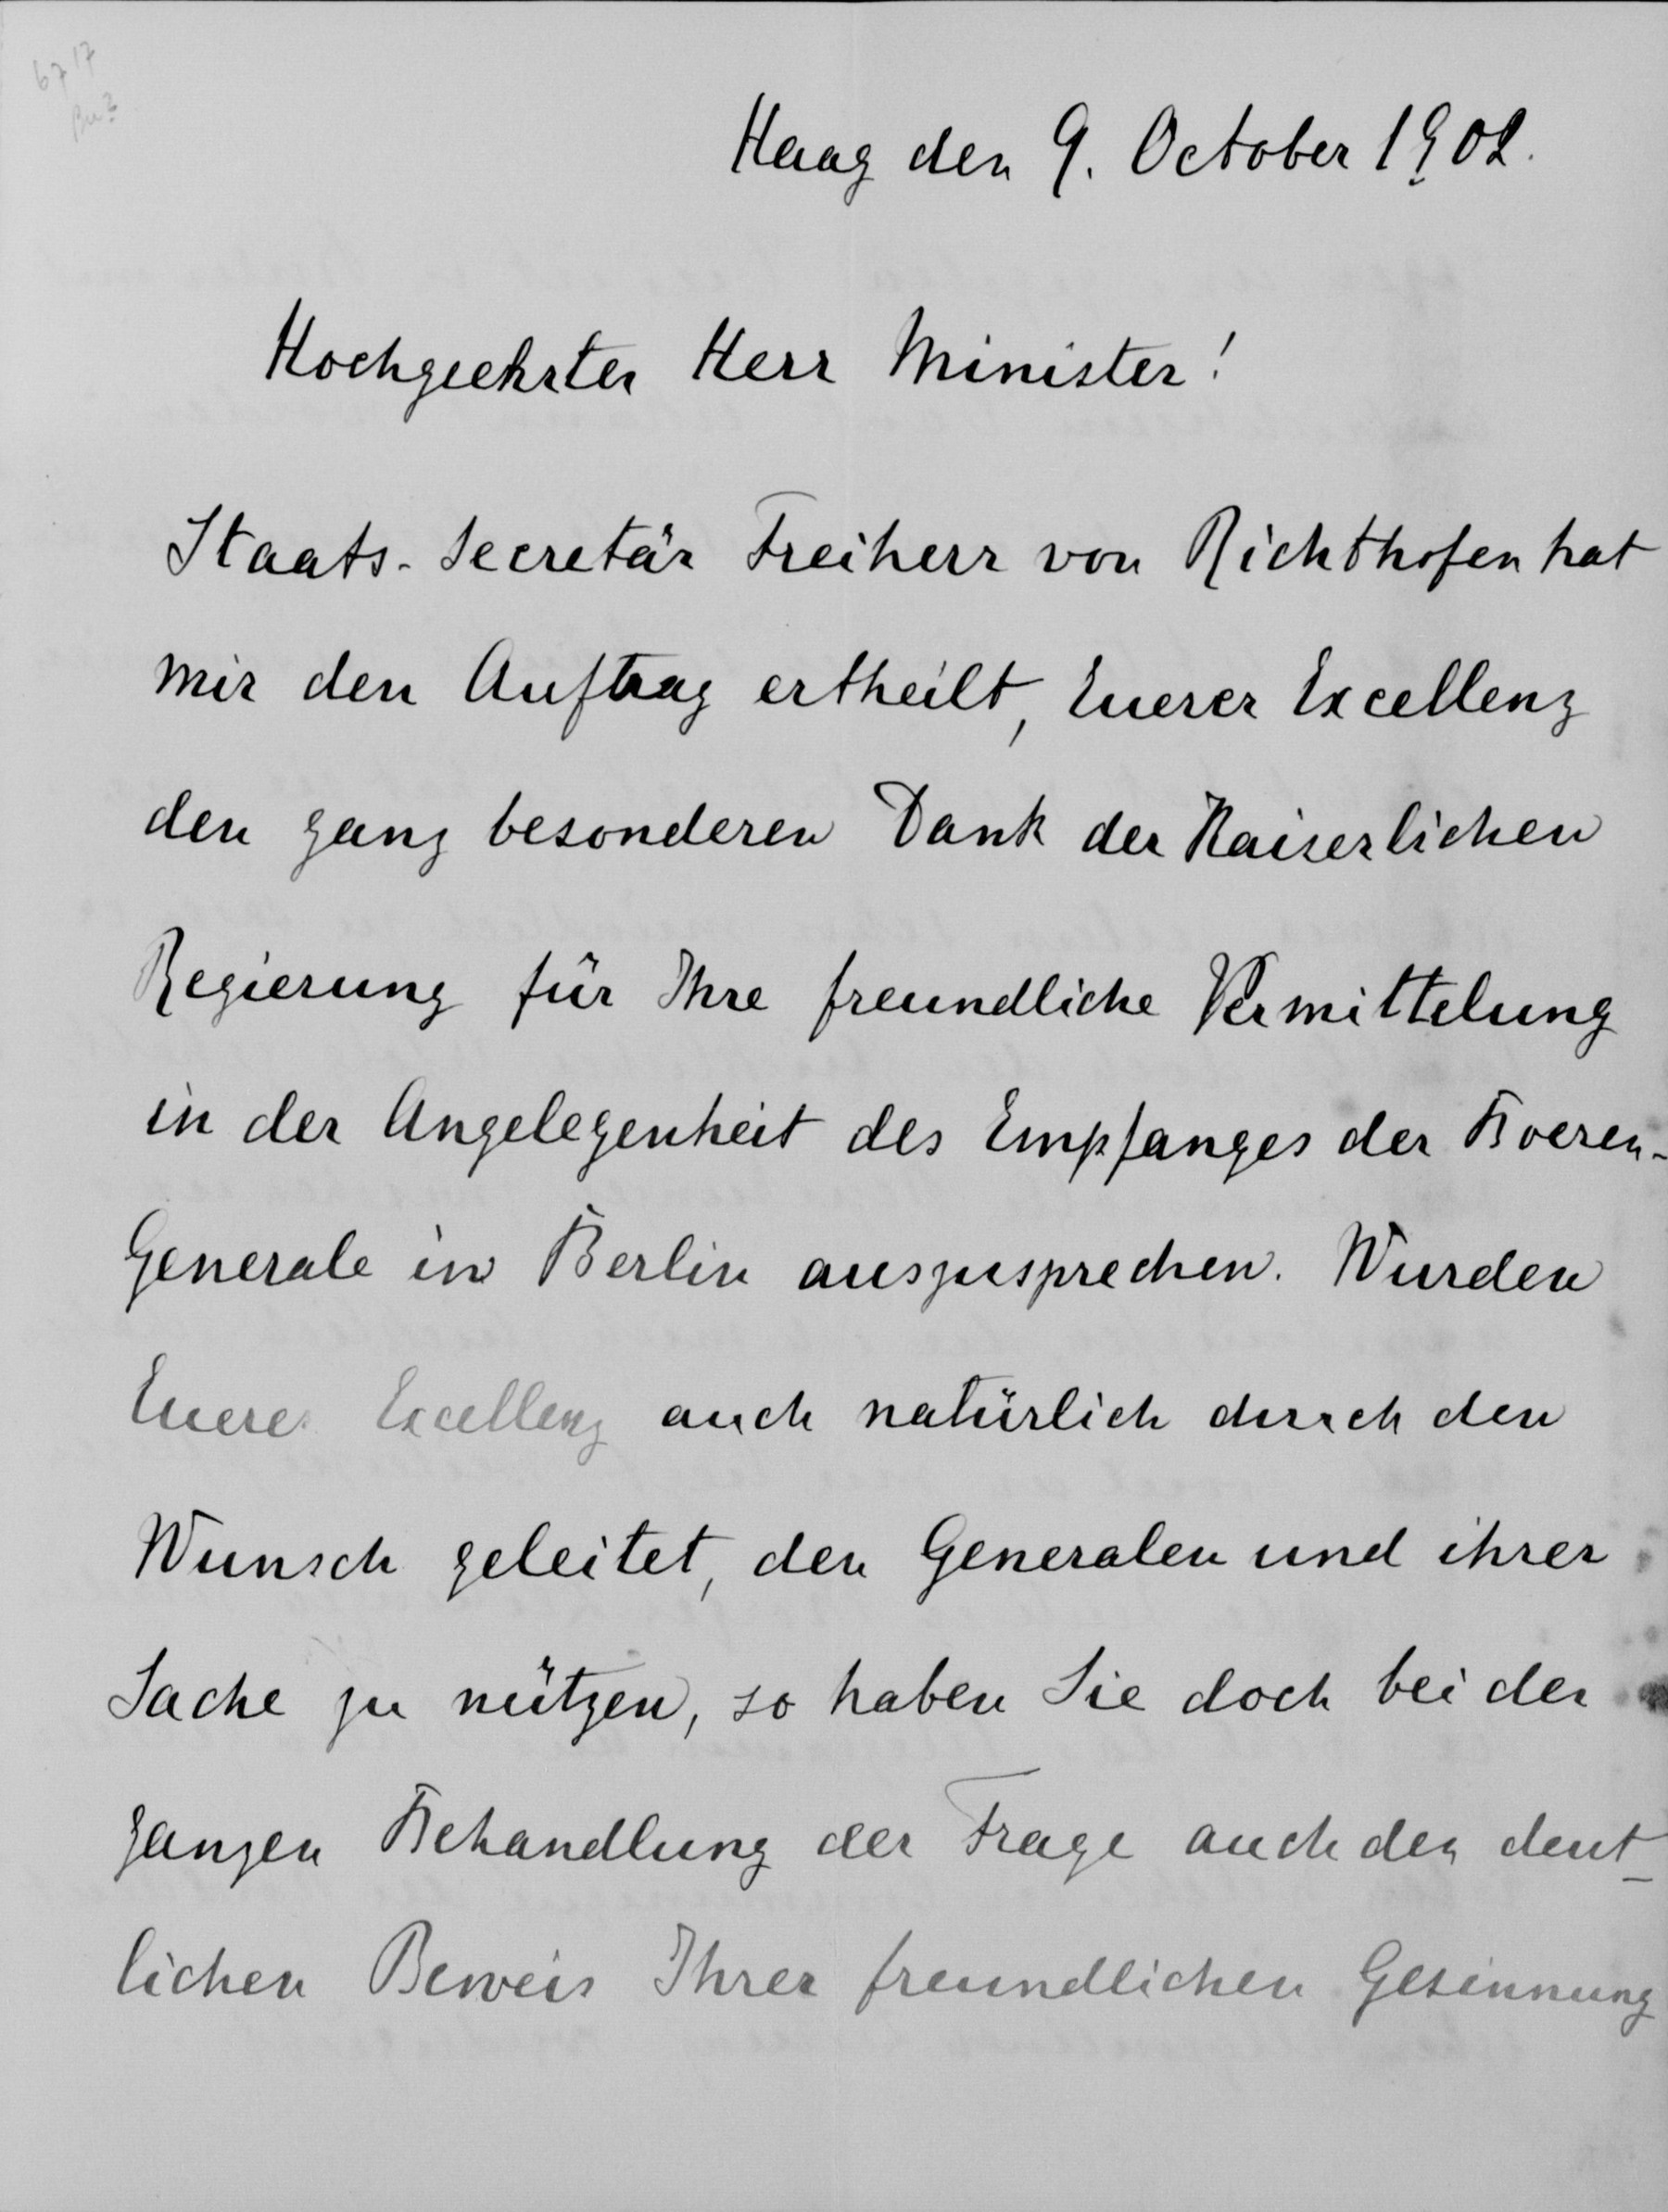 6717
Haag den 9. October 1902.
Hochgeehrter Herr Minister!
Staats-Secretär Freiherr von Richthofen hat
mir den Auftrag ertheilt, Euerer Excellenz
den ganz besonderen Dank der Kaiserlichen
Regierung für Ihre freundliche Vermittelung
in der Angelegenheit des Empfanges der Boeren-
Generale in Berlin auszusprechen. Wurden
Euere Excellenz auch natürlich durch den
Wunsch geleitet, den Generalen und ihrer
Sache zu nützen, so haben Sie doch bei der
ganzen Behandlung der Frage auch den deut-
lichen Beweis Ihrer freundlichen Gesinnung